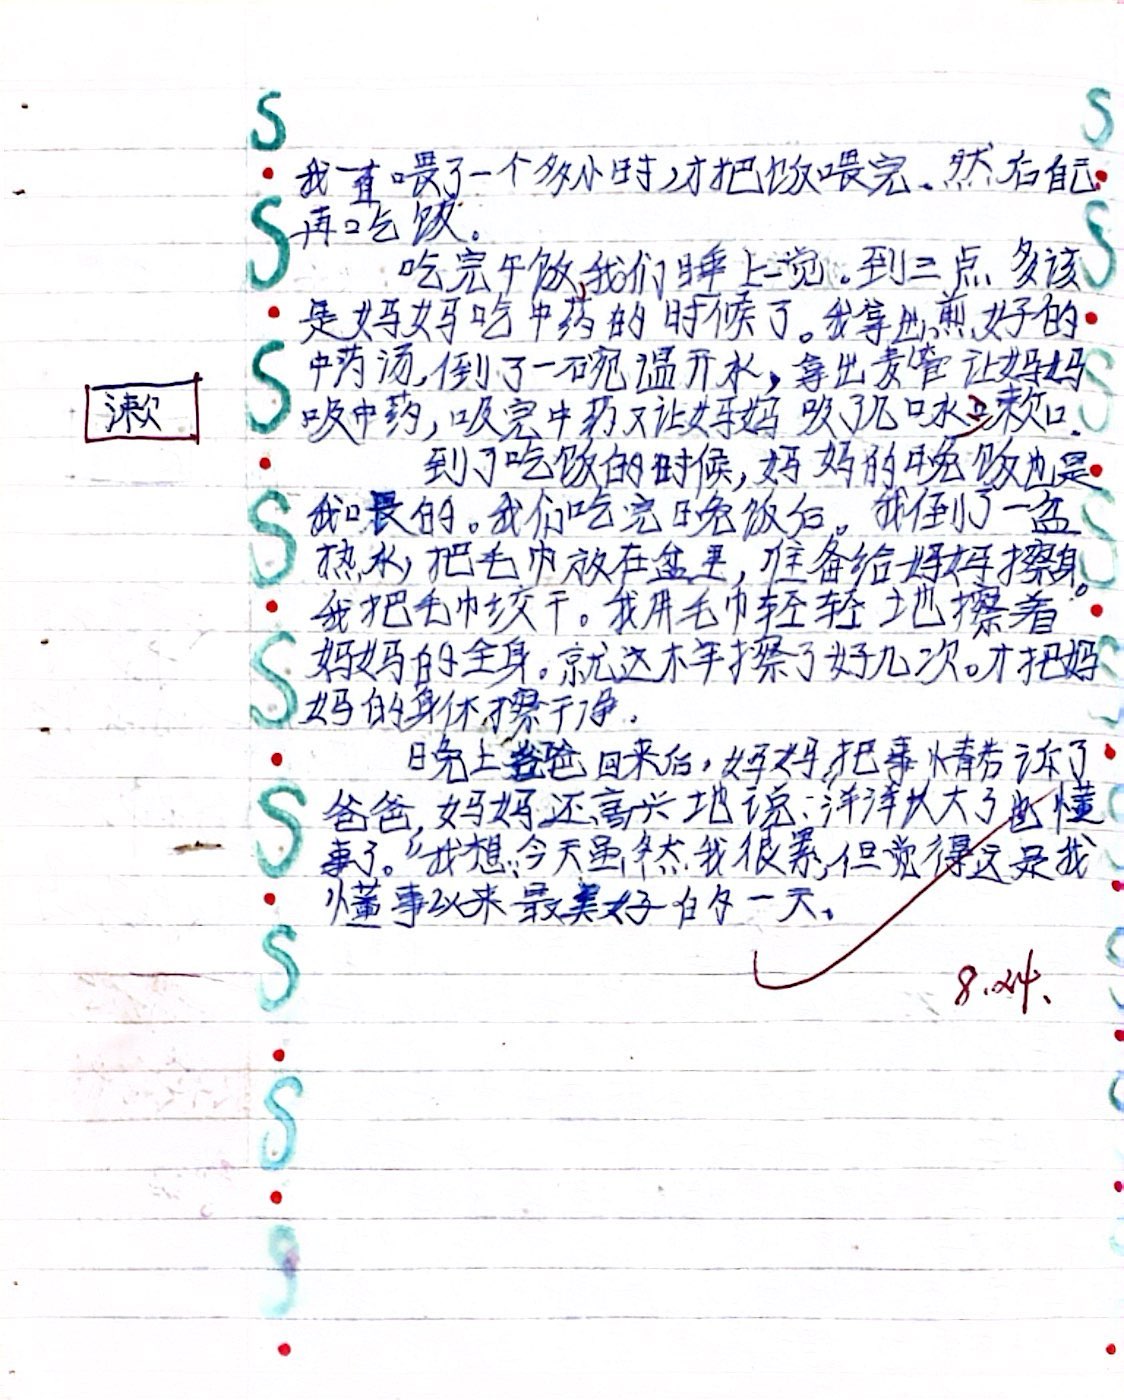 我一直喂了一个多小时,才把饭喂完.然后自己
再吃饭。
吃完午饭,我们睡上一觉.到三点多该
是妈妈吃中药的时候了。我拿出煎好的
中药汤,倒了一碗温开水,拿出麦管让妈妈
漱
吸中药,吸完中药又让妈妈吸了几口水漱口.
到了吃饭的时候,妈妈的晚饭也是
我喂的。我们吃完晚饭后。我倒了一盆
热水,把毛巾放在盆里,准备给妈妈擦身。
我把毛巾绞干。我用毛巾轻轻地擦着
妈妈的全身.就这样擦了好几次。才把妈
妈的身体擦干净.
晚上爸爸回来后,妈妈把事情告诉了
爸爸,妈妈还高兴地说:洋洋大了也懂
事了。”我想:今天虽然我很累,但觉得这是我
懂事以来最美好的一天.
8.24.